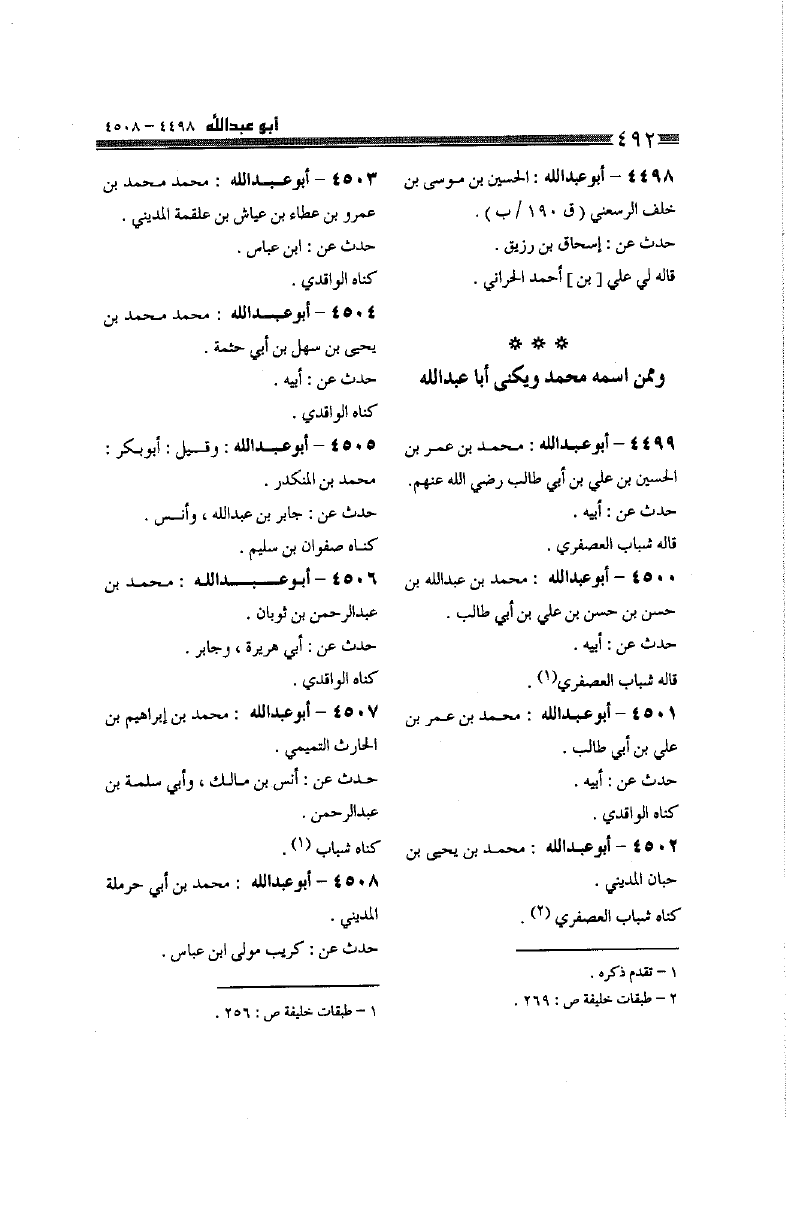 أبو عبدالله ٤٤٩٨ – ٤٥٠٨
٤٩٢
٤٤٩٨ – أبو عبدالله : الحسين بن موسى بن
خلف الرسعني ( ق ١٩٠ / ب ) .
حدث عن : إسحاق بن رزيق .
قاله لي علي [ بن ] أحمد الحراني .
* * *
وممن اسمه محمد ويكنى أبا عبدالله
٤٤٩٩ – أبو عبدالله : محمد بن عمر بن
الحسين بن علي بن أبي طالب رضي الله عنهم.
حدث عن : أبيه .
قاله شباب العصفري .
٤٥٠٠ – أبو عبدالله : محمد بن عبدالله بن
حسن بن حسن بن علي بن أبي طالب .
حدث عن : أبيه .
قاله شباب العصفري (١) .
٤٥٠١ – أبو عبدالله : محمد بن عمر بن
علي بن أبي طالب .
حدث عن : أبيه .
كناه الواقدي .
٤٥٠٢ – أبو عبدالله : محمد بن يحيى بن
حبان المديني .
كناه شباب العصفري (٢) .
١ – تقدم ذكره .
٢ – طبقات خليفة ص : ٢٦٩ .
٤٥٠٣ – أبو عبدالله : محمد محمد بن
عمرو بن عطاء بن عياش بن علقمة المديني .
حدث عن : ابن عباس .
كناه الواقدي .
٤٥٠٤ – أبو عبدالله : محمد محمد بن
يحيى بن سهل بن أبي حثمة .
حدث عن : أبيه .
كناه الواقدي .
٤٥٠٥ – أبو عبدالله : وقيل : أبو بكر :
محمد بن المنكدر .
حدث عن : جابر بن عبدالله ، وأنس .
كناه صفوان بن سليم .
٤٥٠٦ – أبو عبدالله : محمد بن
عبدالرحمن بن ثوبان .
حدث عن : أبي هريرة ، وجابر .
كناه الواقدي .
٤٥٠٧ – أبو عبدالله : محمد بن إبراهيم بن
الحارث التميمي .
حدث عن : أنس بن مالك ، وأبي سلمة بن
عبدالرحمن .
كناه شباب (١) .
٤٥٠٨ – أبو عبدالله : محمد بن أبي حرملة
المديني .
حدث عن : كريب مولى ابن عباس .
١ – طبقات خليفة ص : ٢٥٦ .